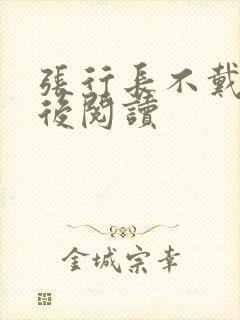 張行長不戴
後閱讀
金城宗幸